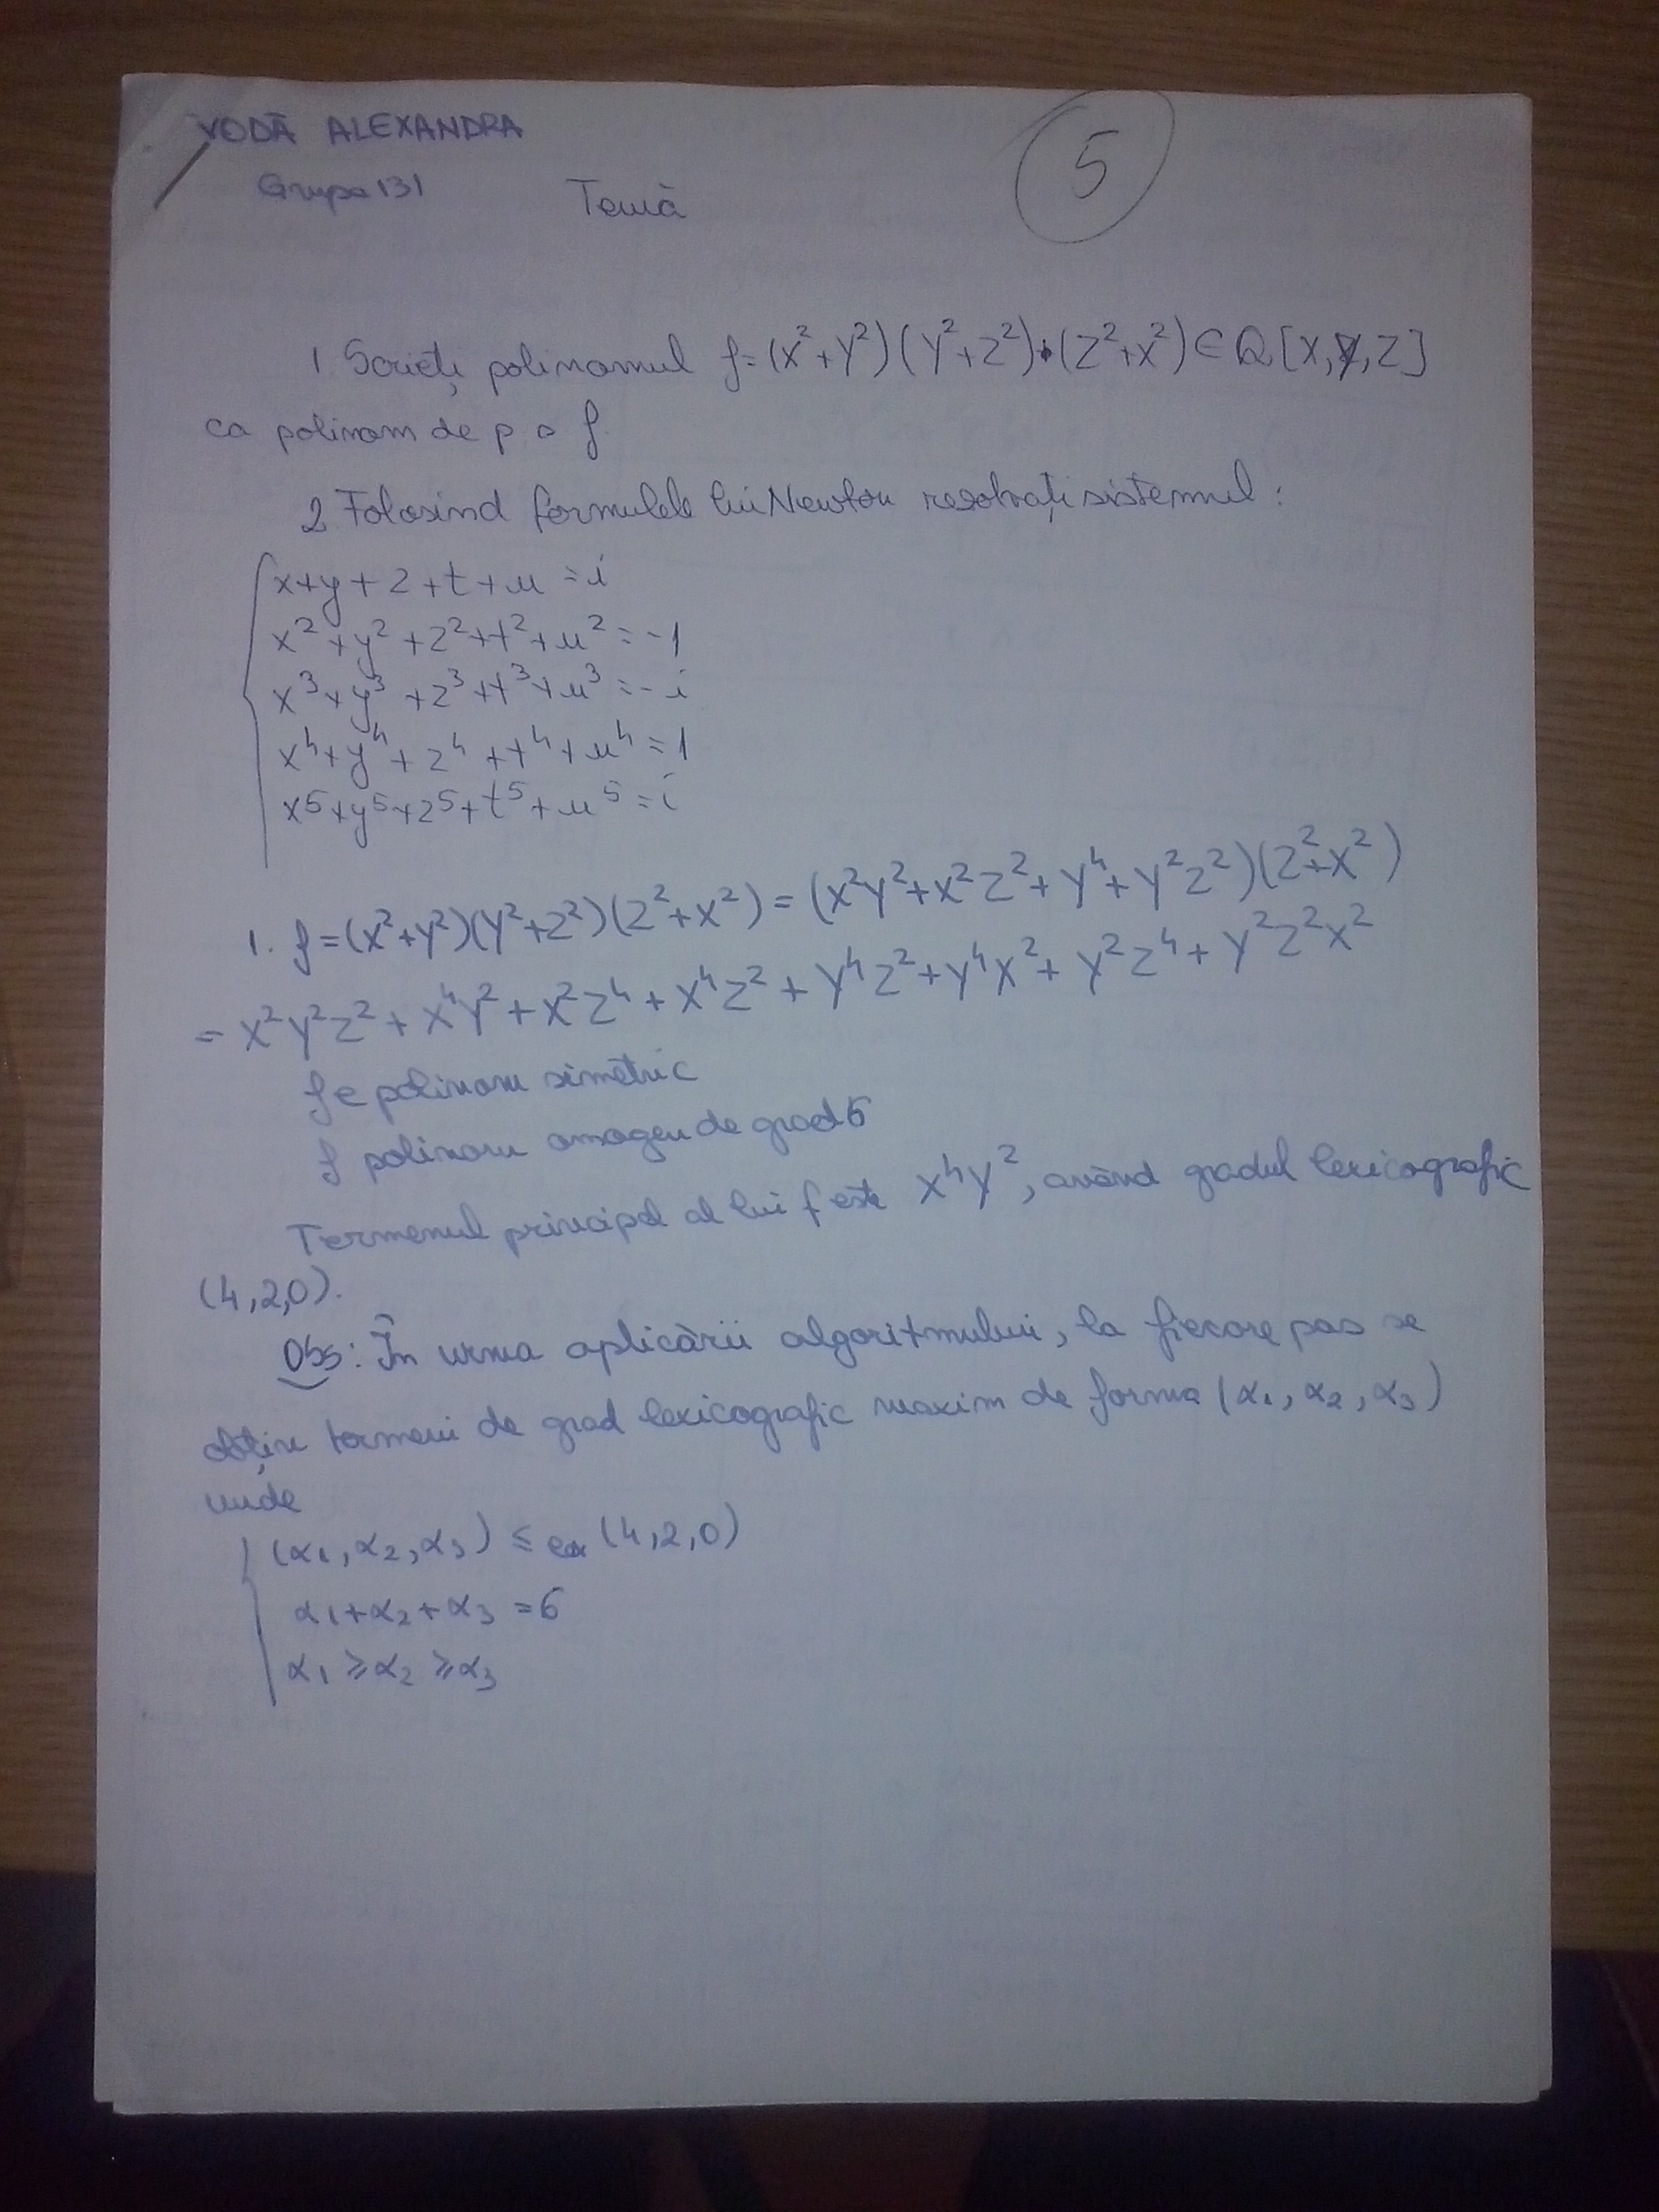 VODĂ ALEXANDRA
Grupa 131
Temă
5
1 Scrieți polinomul f=(X²+Y²)(Y²+Z²)·(Z²+X²)∈Q[X,Y,Z]
ca polinom de p s f.
2 Folosind formulele lui Newton rezolvați sistemul:
x+y+z+t+u=i
x²+y²+z²+t²+u²=-1
x³+y³+z³+t³+u³=-i
x⁴+y⁴+z⁴+t⁴+u⁴=1
x⁵+y⁵+z⁵+t⁵+u⁵=i
1. f=(X²+Y²)(Y²+Z²)(Z²+X²)=(X²Y²+X²Z²+Y⁴+Y²Z²)(Z²+X²)
=X²Y²Z²+X⁴Y²+X²Z⁴+X⁴Z²+Y⁴Z²+Y⁴X²+Y²Z⁴+Y²Z²X²
f e polinom simetric
f polinom omogen de grad 6
Termenul principal al lui f este X⁴Y², având gradul lexicografic
(4,2,0).
Obs: În urma aplicării algoritmului, la fiecare pas se
obțin termeni de grad lexicografic maxim de forma (α₁,α₂,α₃)
unde
(α₁,α₂,α₃) ≤ lex (4,2,0)
α₁+α₂+α₃=6
α₁≥α₂≥α₃